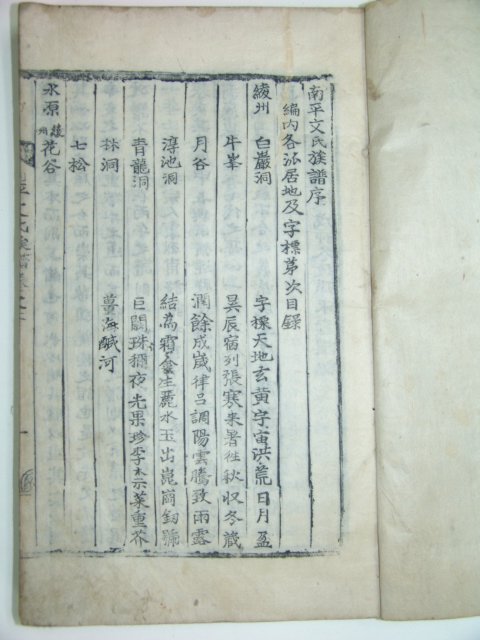 南平文氏族譜序
編內各派居地及字標苐次目錄
綾州 白巖洞 字標天地玄黃字宙洪荒日月盈
牛峯 昃辰宿列張寒来暑徃秋収冬蔵
月谷 潤餘成歲律呂調陽雲騰致雨露
淳池洞 結為霜金生麗水玉出崑崗釖號
青龍洞 巨闕珠稱夜光果珍李柰菜重芥
林洞 薑海鹹河
七松
水原 綾州 花谷